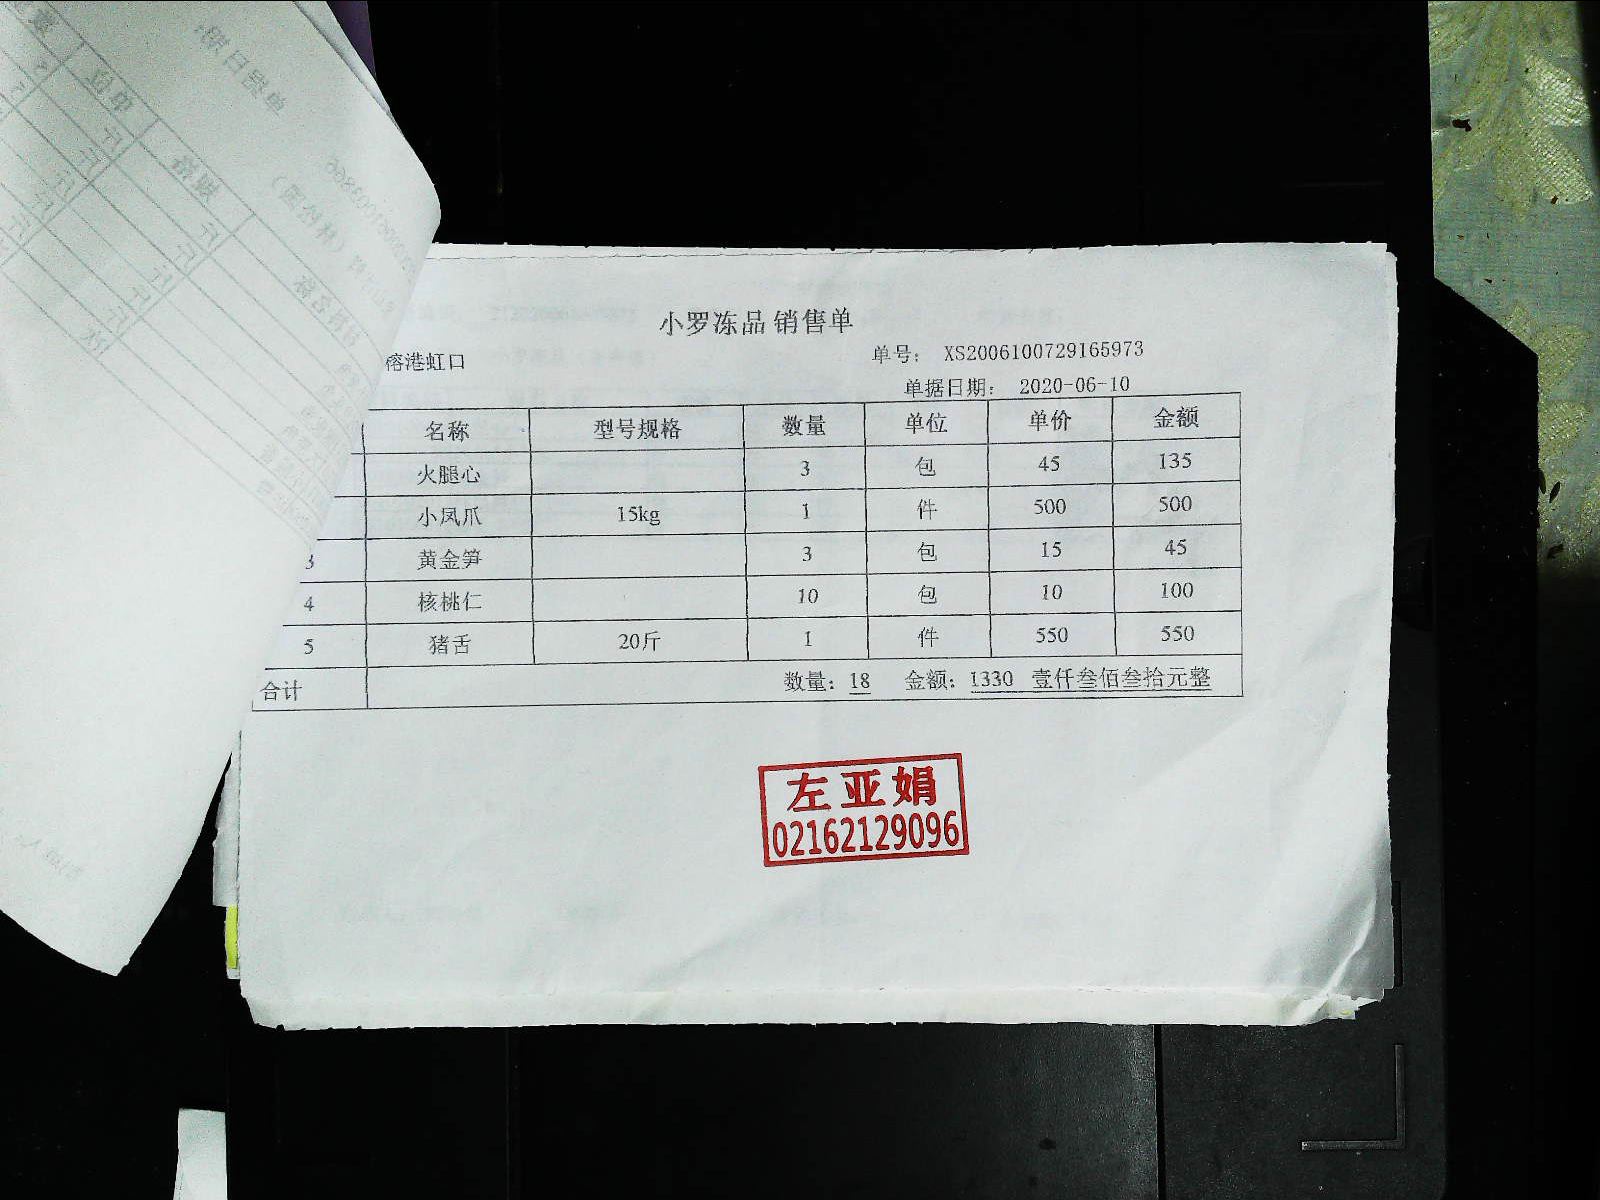 小罗冻品 销售单
榕港虹口
单号： XS2006100729165973
单据日期： 2020-06-10
名称 型号规格 数量 单位 单价 金额
火腿心 3 包 45 135
小凤爪 15kg 1 件 500 500
3 黄金笋 3 包 15 45
4 核桃仁 10 包 10 100
5 猪舌 20斤 1 件 550 550
合计 数量：18 金额：1330 壹仟叁佰叁拾元整
左亚娟
02162129096